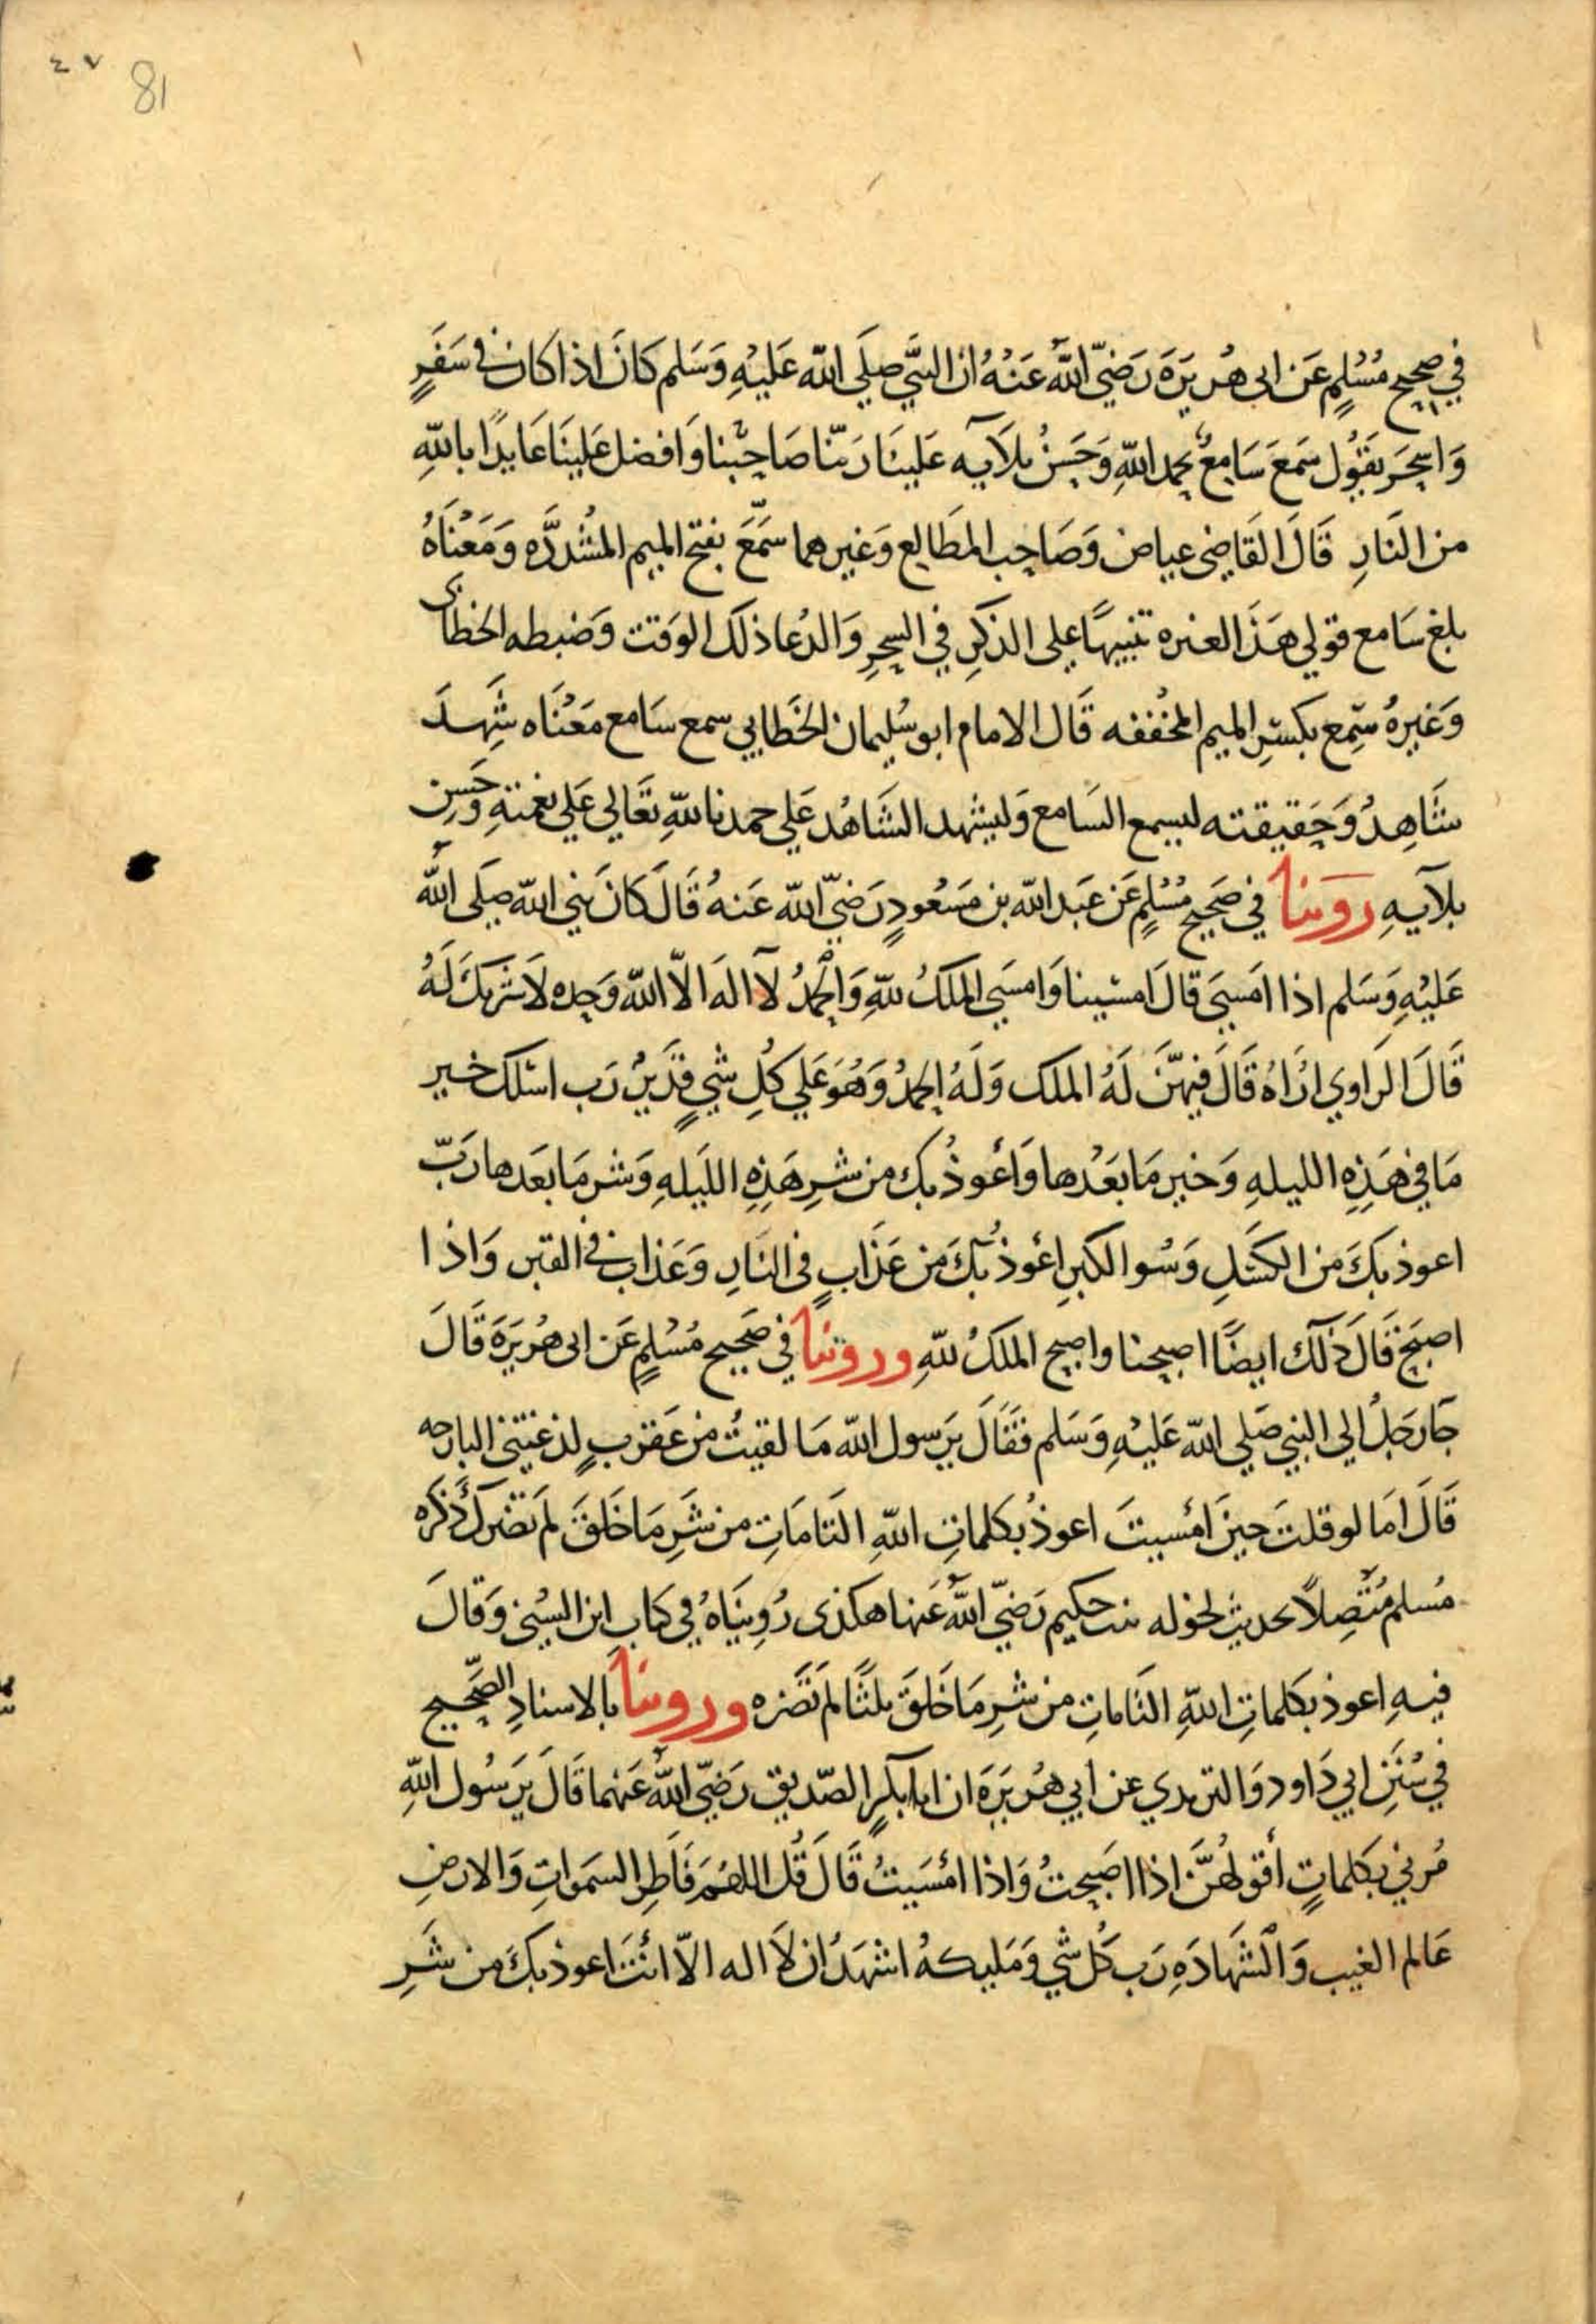 ٤٧ 81
في صحيح مُسْلمٍ عَن ابى هُريَرَة رَضيّ اللّهُ عَنْهُ ان النبَّي صلَي اللّه عَليْهِ وَسَلم كَانَ اذا كان في سَفَرٍ
وَاسحَر يقوُل سَمعَ سَامِعٌ بحمد اللّهِ وَحَسنُ بلَآيه عَلينَا رَبّنا صَاحِبْنا وَافضل عَلينَا عَايذًا باللّهِ
من النَارِ قَالَ القَاضي عياض وَصَاحِب المَطَالع وَغيرهما سَمَّعَ بفتح الميم المُشددَّه وَمَعْنَاهُ
بلغ سَامع قولي هَذَا لغيره تنبيهًا علي الذكرِ في السحرِ وَالدُعا ذلك الوَقت وَضبطه الخطابى
وَغيرهُ سَمِع بكسْرِ الميم المخُففه قَال الامام ابو سُليمان الخَطابي سمع سَامع مَعْنَاه شَهِدَ
شَاهِدُ وَحَقيقته ليسمع السَامع وَليشهد الشَاهُد عَلي حمدنا للّهِ تعَالي عَلي نعمتهِ وَحسن
بلآيهِ روينا في صَحيحِ مُسْلمٍ عَن عَبَد اللّه بن مَسَعُودٍ رَضيّ اللّه عَنهُ قَالَ كانَ نبي اللّه صلَى اللّهُ
عَليْهِ وَسَلم اذا امَسىَ قالَ امسْينا وَامسَي الملكُ للّهِ وَالحَمدُ لآ الهَ الاّ اللّه وَحده لاَ شريكَ لَهُ
قَالَ الرَاوي ارُاهُ قَالَ فيهنَّ لَهُ الملك وَلَهُ الحمدُ وَهُوَ عَلي كُلِ شيٍ قدَيرُ رَب اسئلك خير
مَا في هَذِهِ الليلهِ وَخير مَا بعَدْها وَأعَوذُ بك من شرِ هَذِهِ الليَلهِ وَشر مَا بعَدها رَبّ
اعوذ بكَ من الكسَلِ وَسُوا الكبرِ اعَوذُ بكَ من عَذَابٍ في النارِ وَعَذابٍ في القبر وَاذا
اصبَح قَالَ ذلَك ايضًا اصبحنا واصبح الملكُ للّهِ وروينا في صَحيح مُسْلمٍ عَن ابى هُريَرَة قَالَ
جَا رَجَلُ الي النبي صَلي اللّه عَليْهِ وَسَلم فقَالَ يرَسول اللّه مَا لقيتُ من عَقربٍ لدغتني البارحه
قَالَ امَا لو قلتَ حينَ امْسيتَ اعوذُ بكلماتِ اللّهِ التَامَاتِ من شَرِ مَا خَلقَ لَم تضرك ذكره
مُسلم مُتَصِلاً بحديث لخوله بنت حكيم رَضيّ اللّهُ عَنها هكذى رُوينَاهُ في كتاب ابن السُني وَقالَ
فيهِ اعوذ بكلماتِ اللّهِ التَاماتِ من شرِ مَا خَلقَ ثلثًا لَم تَضَره وروينا بالاسنادِ الصَّحيح
في سُننِ ابي دَاود وَالترمدي عن ابي هُريَرَة ان ابا بكرٍ الصّديق رَضيّ اللّهُ عَنهما قَالَ يرَسُول اللّهِ
مُرني بكلماتٍ أقولهُنَّ اذا اصَبحتُ وَاذا امْسَيتُ قَالَ قُل اللهُمَ فَاطِر السَموَاتِ وَالارضِ
عَالم الغيب وَالشهَادَهِ رَب كُل شي وَمَليكهُ اشهَدُ ان لاَ اله الاّ انتَ اعوذ بكَ من شَرِ